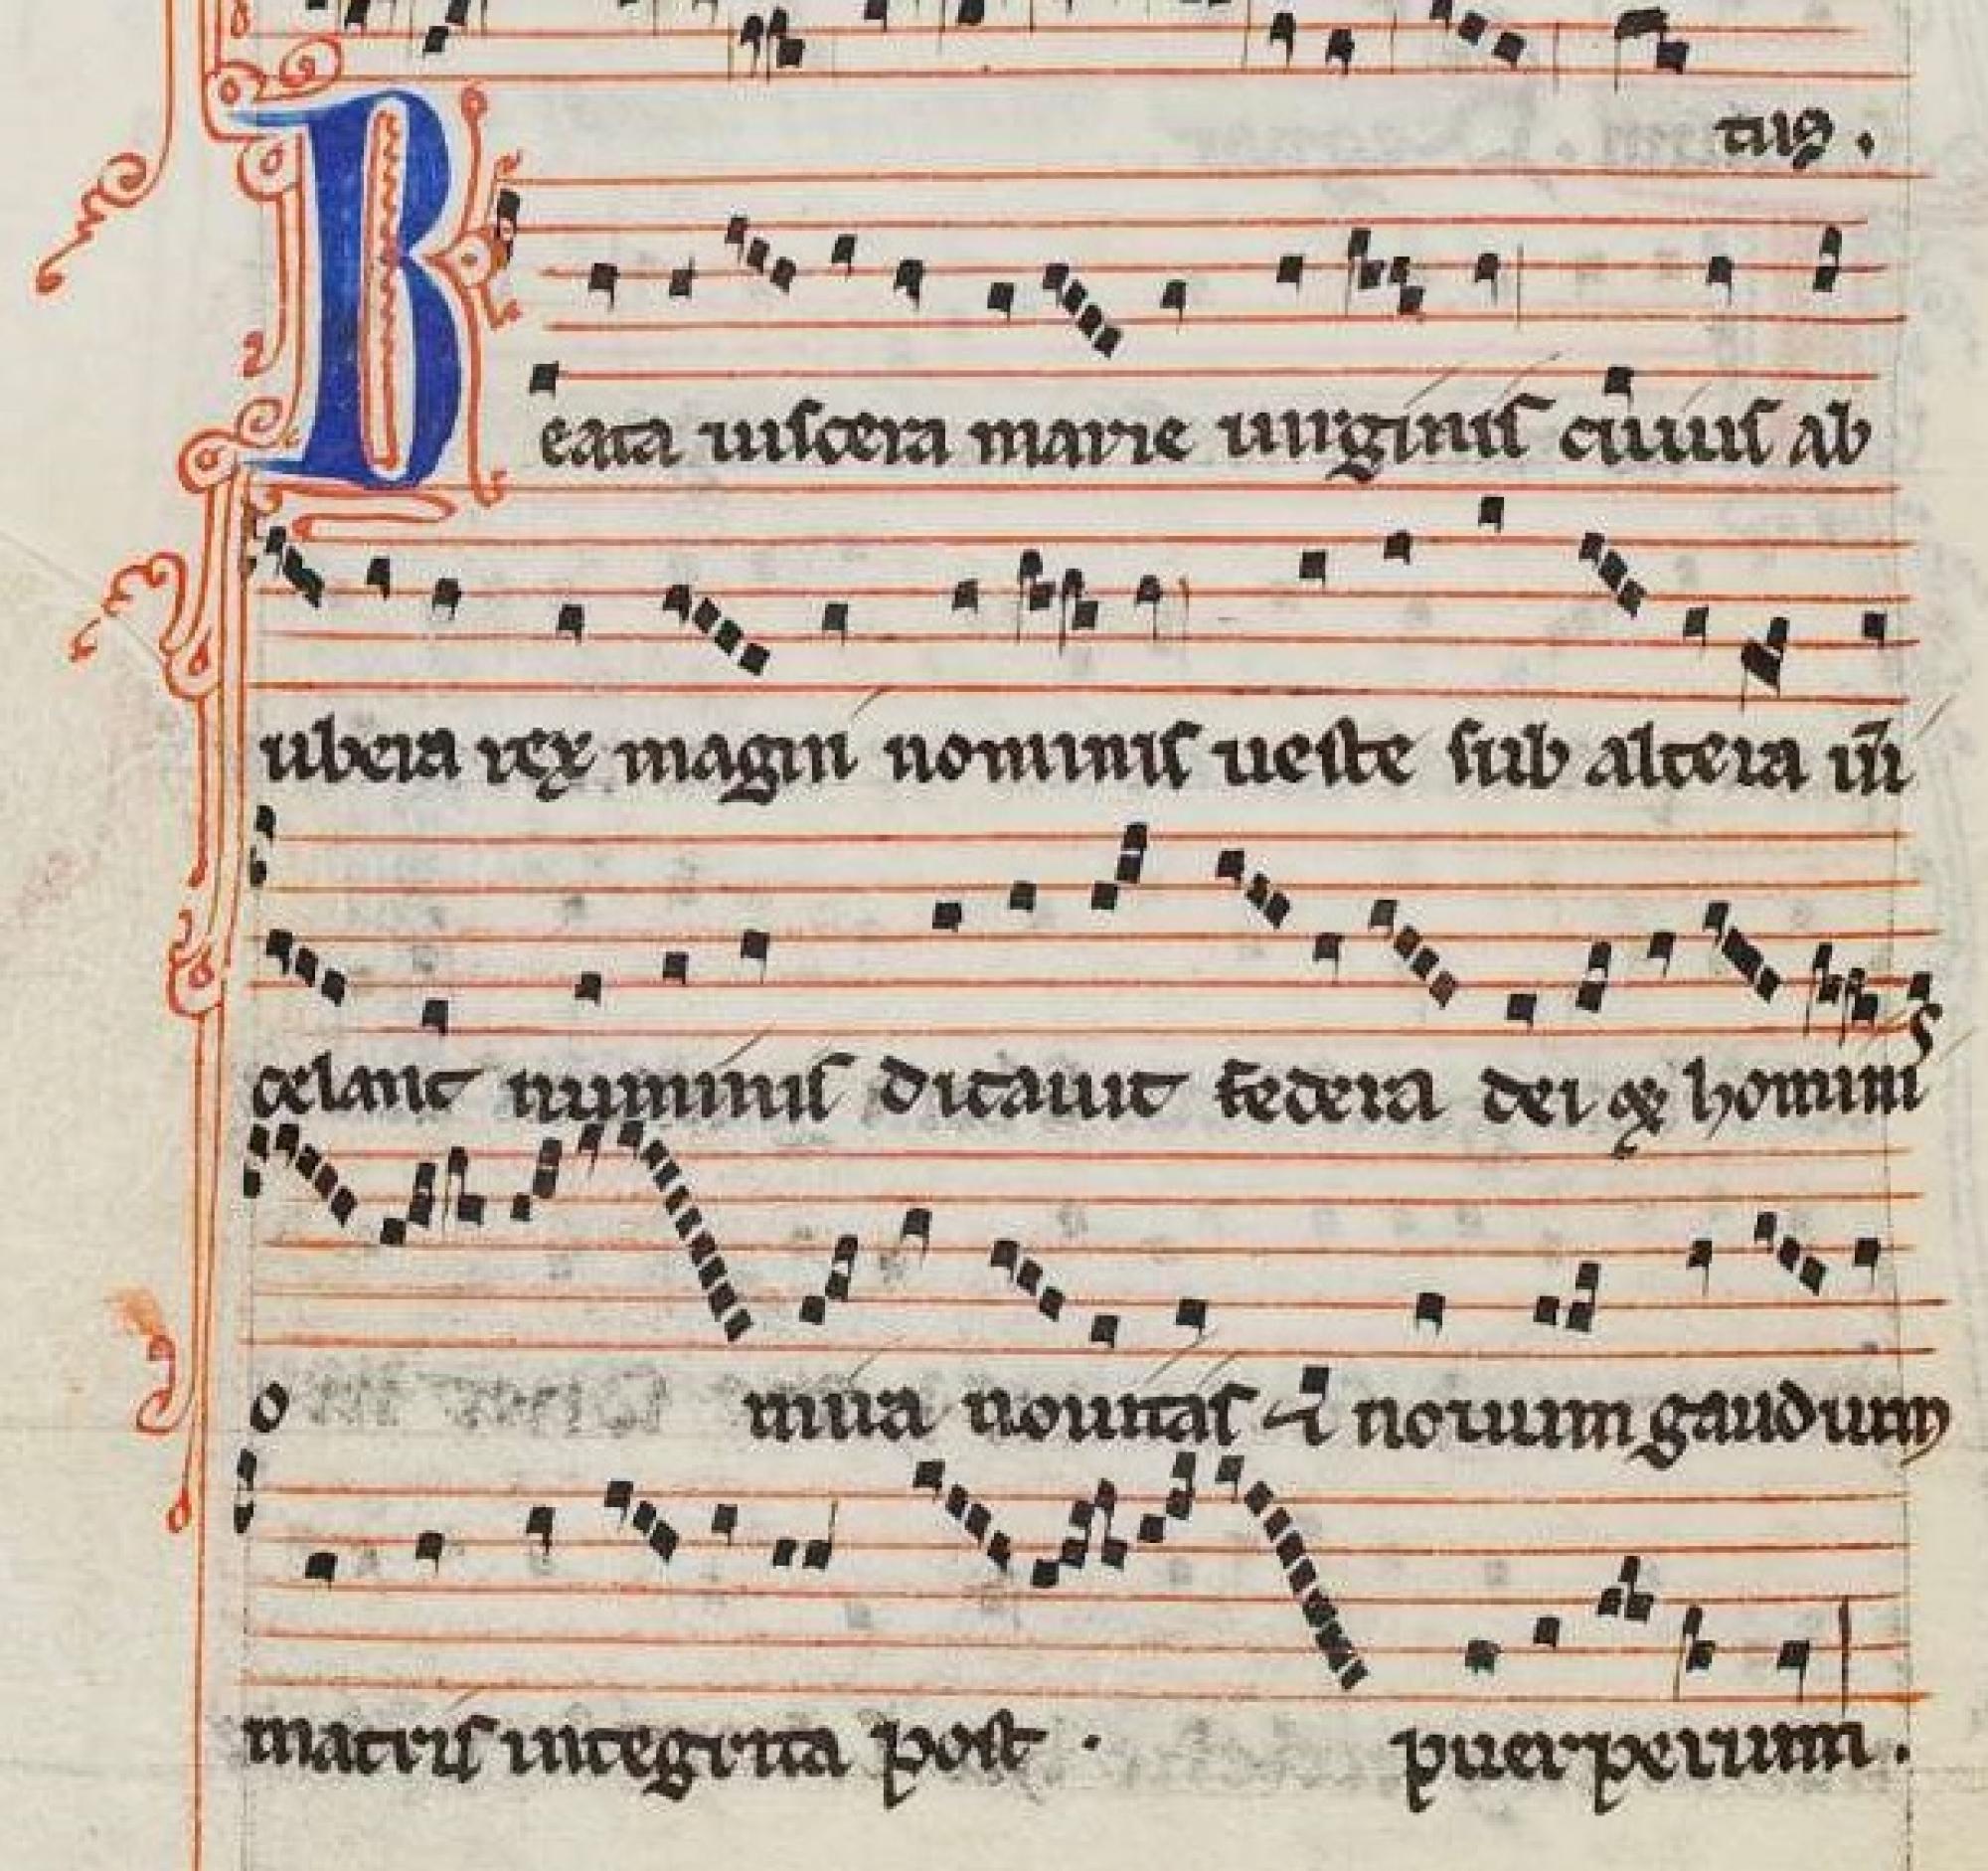 tuꝯ.
Beata uiscera marie uirginis cuius ab
ubera rex magni nominis ueste sub altera uī
celauit numinis dictauit federa dei & hominis
o mira nouitas & nouum gaudium
matris integrita post. puerperium.